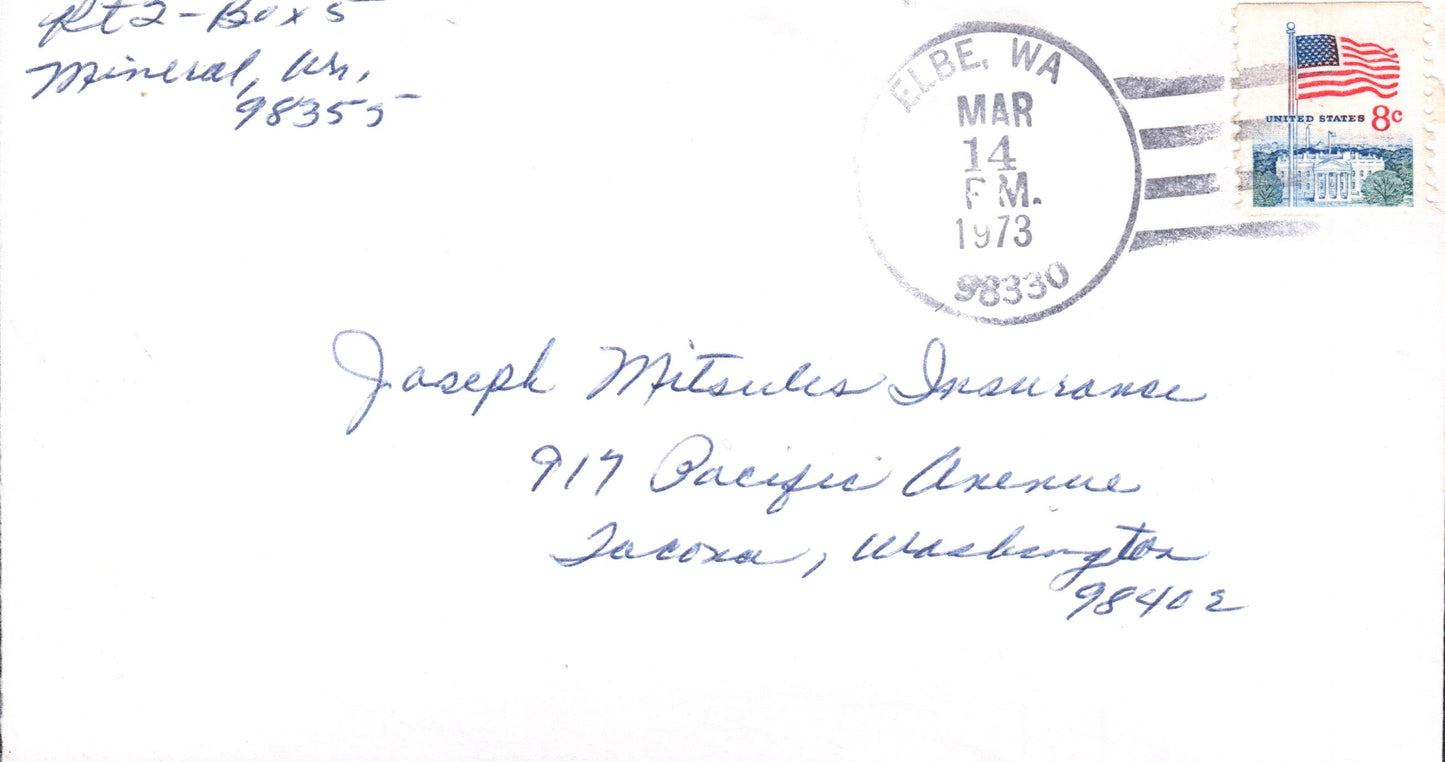 Rt 2 - Box 5
Mineral, Wn.
98355
ELBE, WA
MAR
14
PM.
1973
98330
UNITED STATES 8c
Joseph Mitsules Insurance
917 Pacific Avenue
Tacoma, Washington
98402